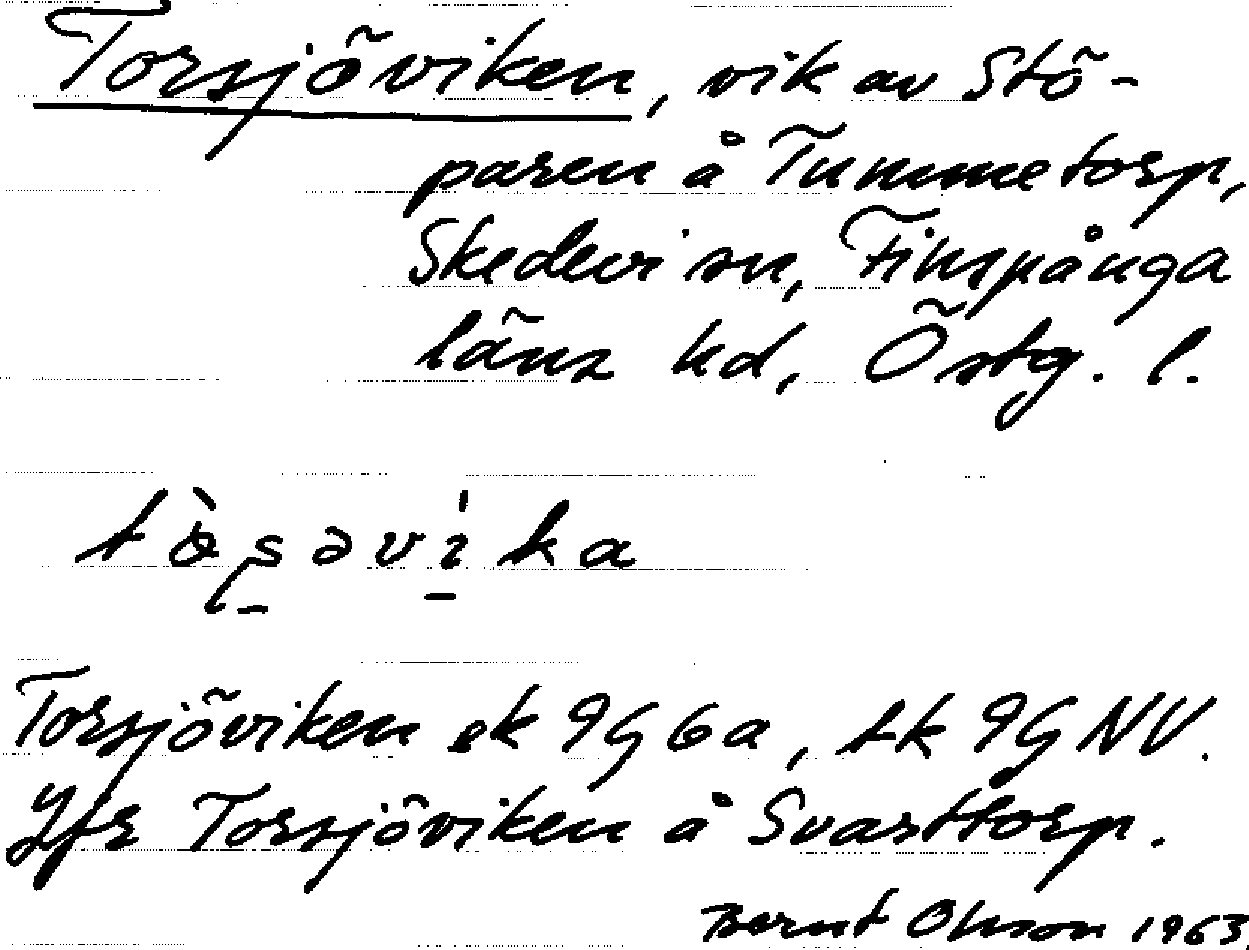 Torsjöviken, vik av Stö-
paren å Tummetorp,
Skedevi sn, Finspånga
läns hd, Östg. l.
tòʂəvìka
Torsjöviken ek 9G 6a, tk 9G NV.
Jfr Torsjöviken å Svarttorp.
Bernt Olsson 1963